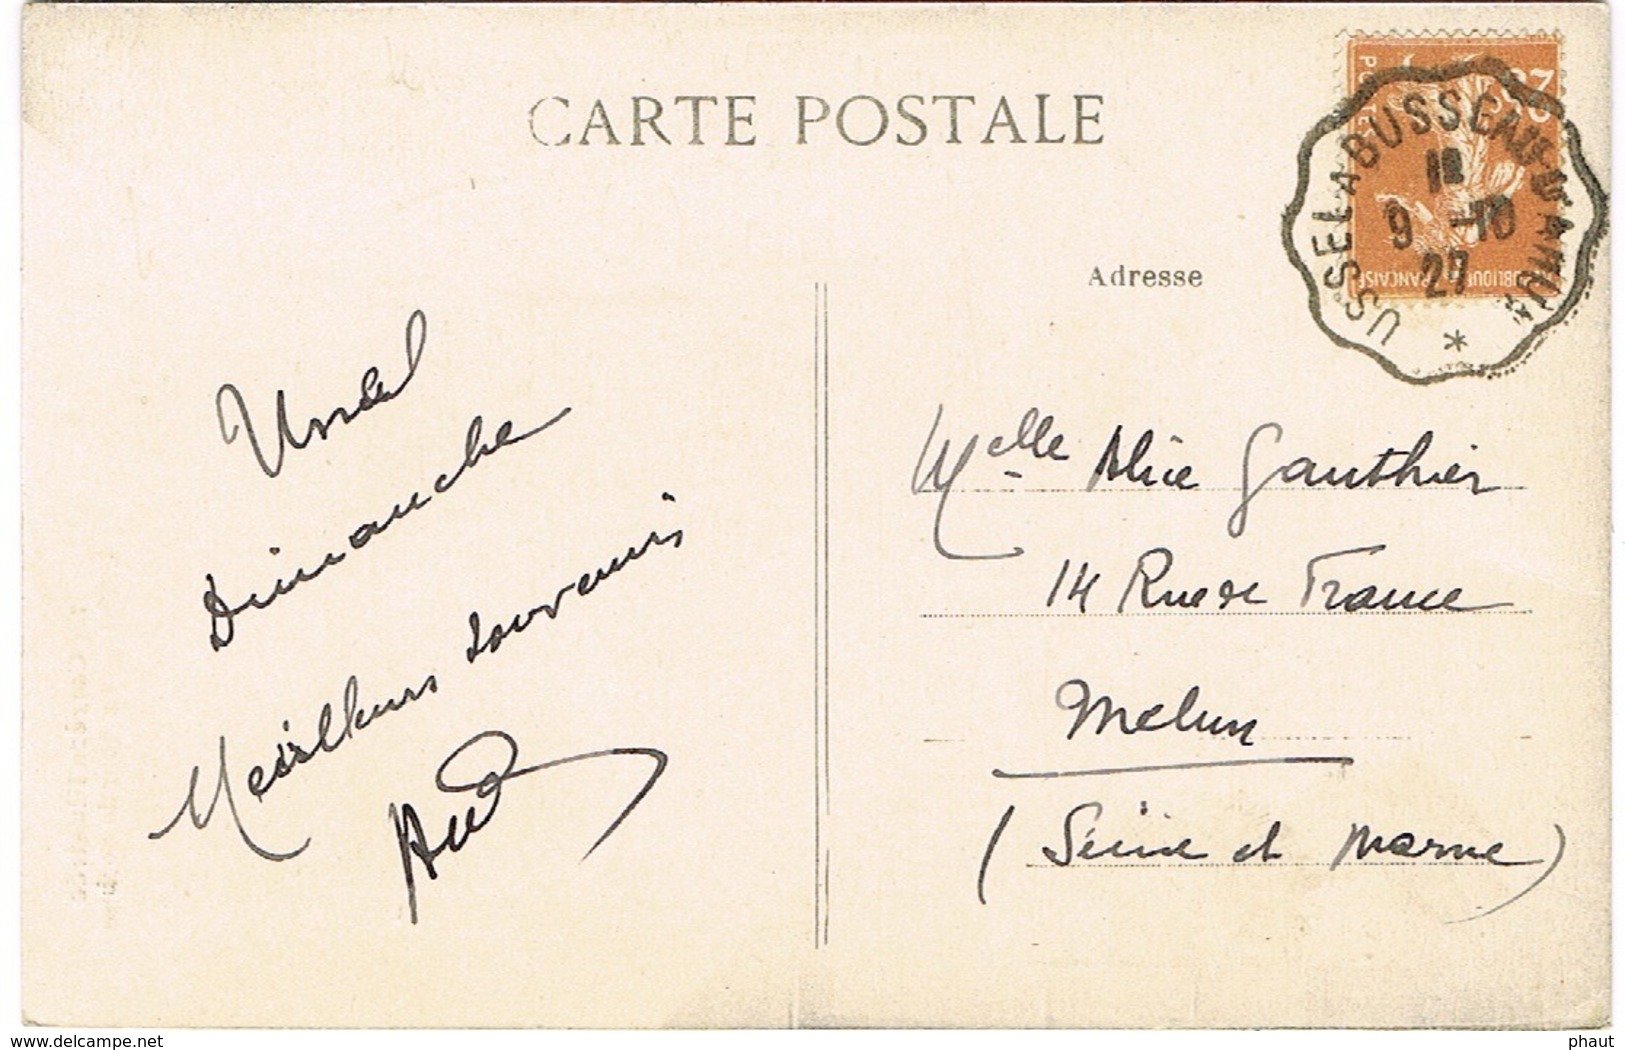 CARTE POSTALE
USSEL A BUSSEAU-D'AHUN
9 -10
27
*
Adresse
Ussel
Dimanche
Meilleurs souvenirs
Melle Alice Gauthier
14 Rue de France
Melun
(Seine et Marne)
www.delcampe.net
phaut